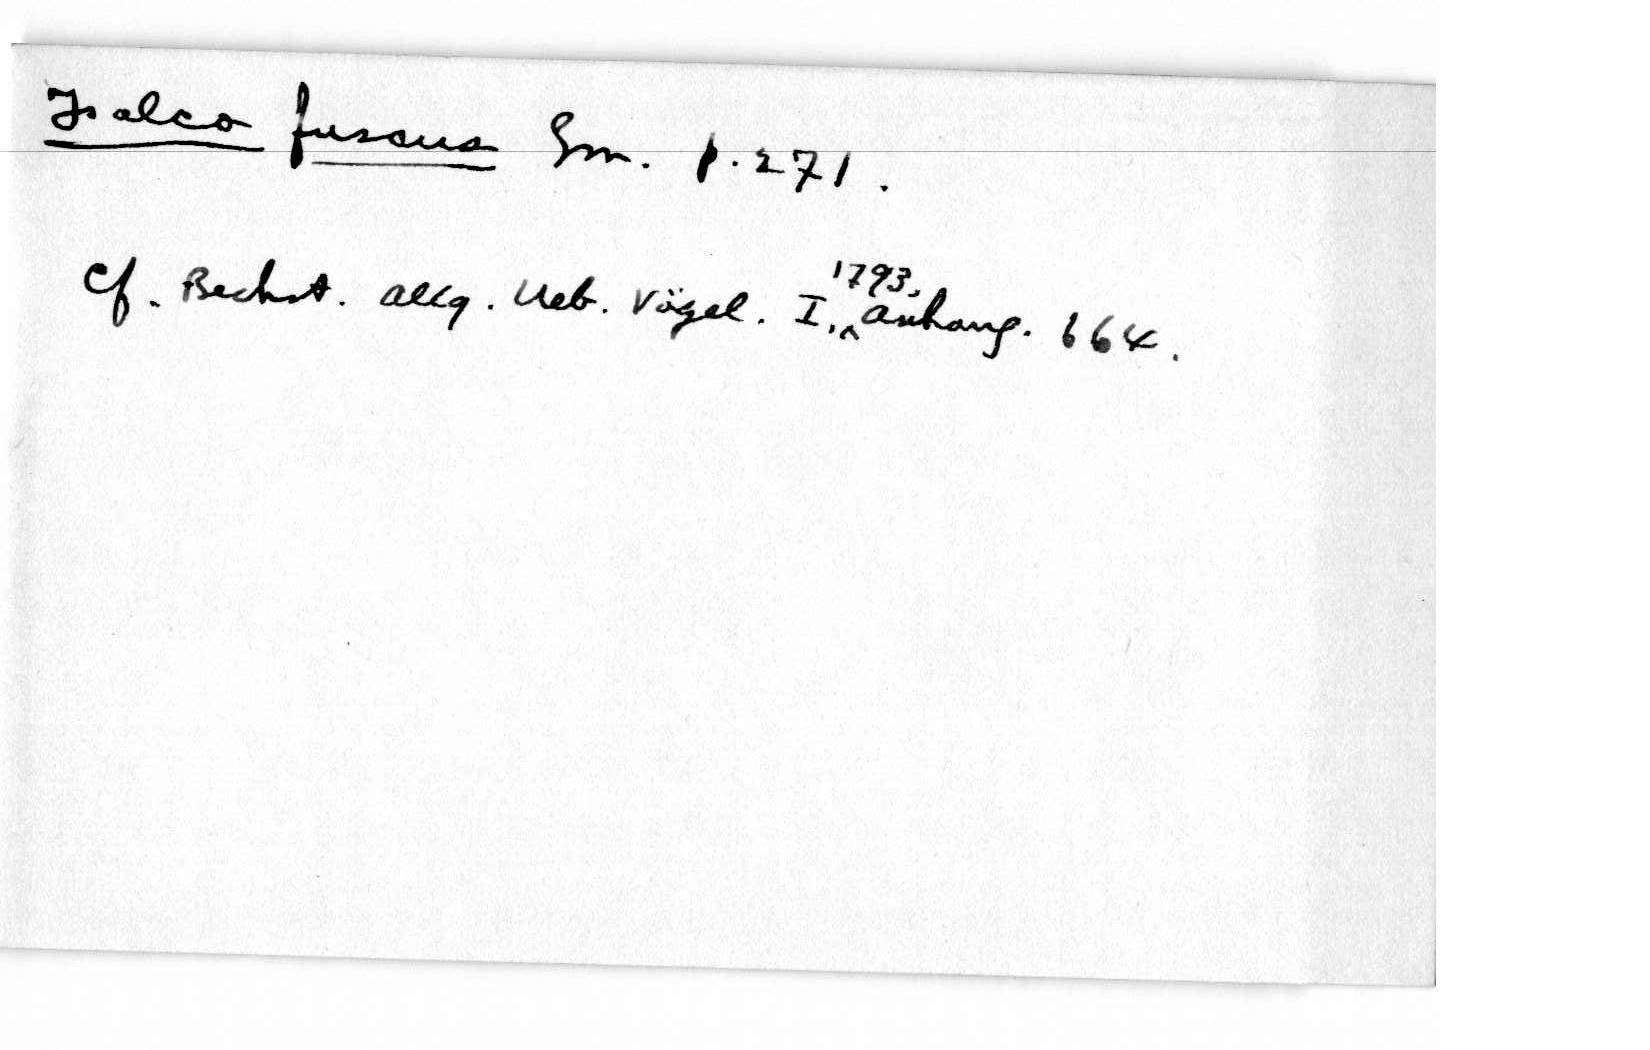 Falco fuscus Gm. p. 271.
cf. Bechst. allg. Ueb. Vögel. I, 1793, Anhang. 664.